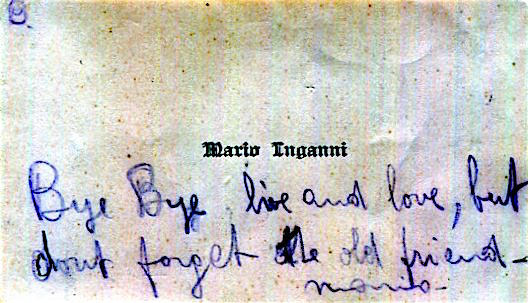 Mario Inganni
Bye Bye, live and love, but
dont forget the old friend-
mario-